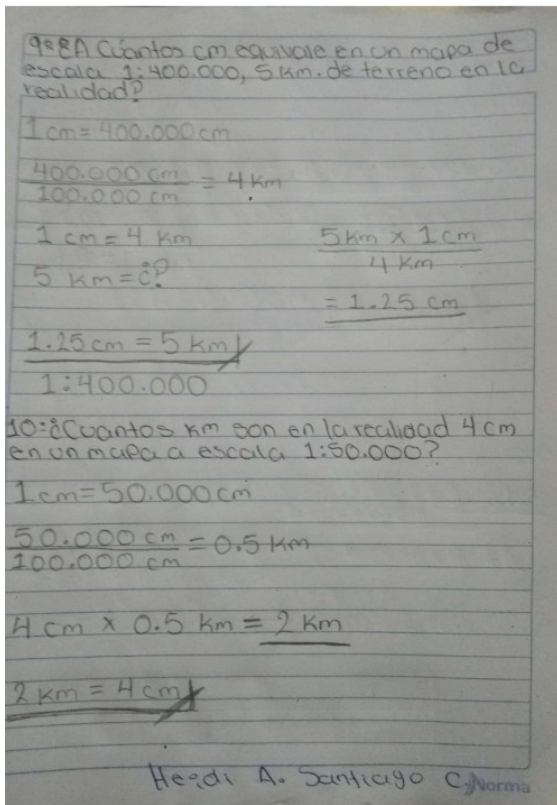 9:¿A Cuantos cm equivale en un mapa de
escala 1:400.000, 5 km. de terreno en la
realidad?
1 cm = 400.000 cm
400.000 cm / 100.000 cm = 4 km
1 cm = 4 km
5 km = ¿?
5 km x 1 cm / 4 km
= 1.25 cm
1.25 cm = 5 km
1:400.000
10:¿Cuantos km son en la realidad 4 cm
en un mapa a escala 1:50.000?
1 cm = 50.000 cm
50.000 cm / 100.000 cm = 0.5 km
4 cm x 0.5 km = 2 km
2 km = 4 cm
Heidi A. Santiago C.
Norma